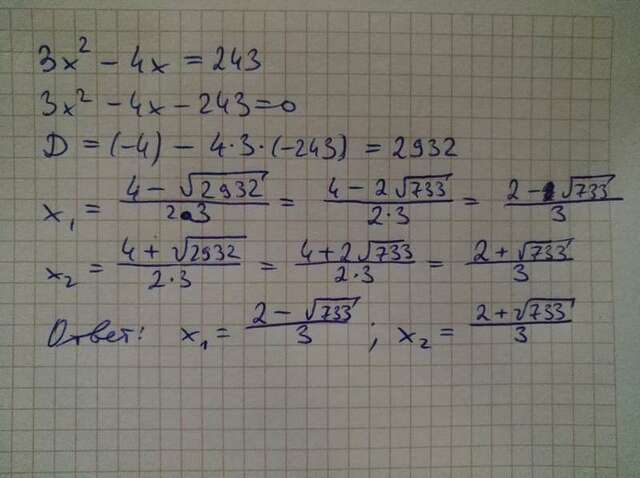 3x² - 4x = 243
3x² - 4x - 243 = 0
D = (-4) - 4·3·(-243) = 2932
x₁ = (4 - √2932)/(2·3) = (4 - 2√733)/(2·3) = (2 - √733)/3
x₂ = (4 + √2932)/(2·3) = (4 + 2√733)/(2·3) = (2 + √733)/3
Ответ: x₁ = (2 - √733)/3 ; x₂ = (2 + √733)/3